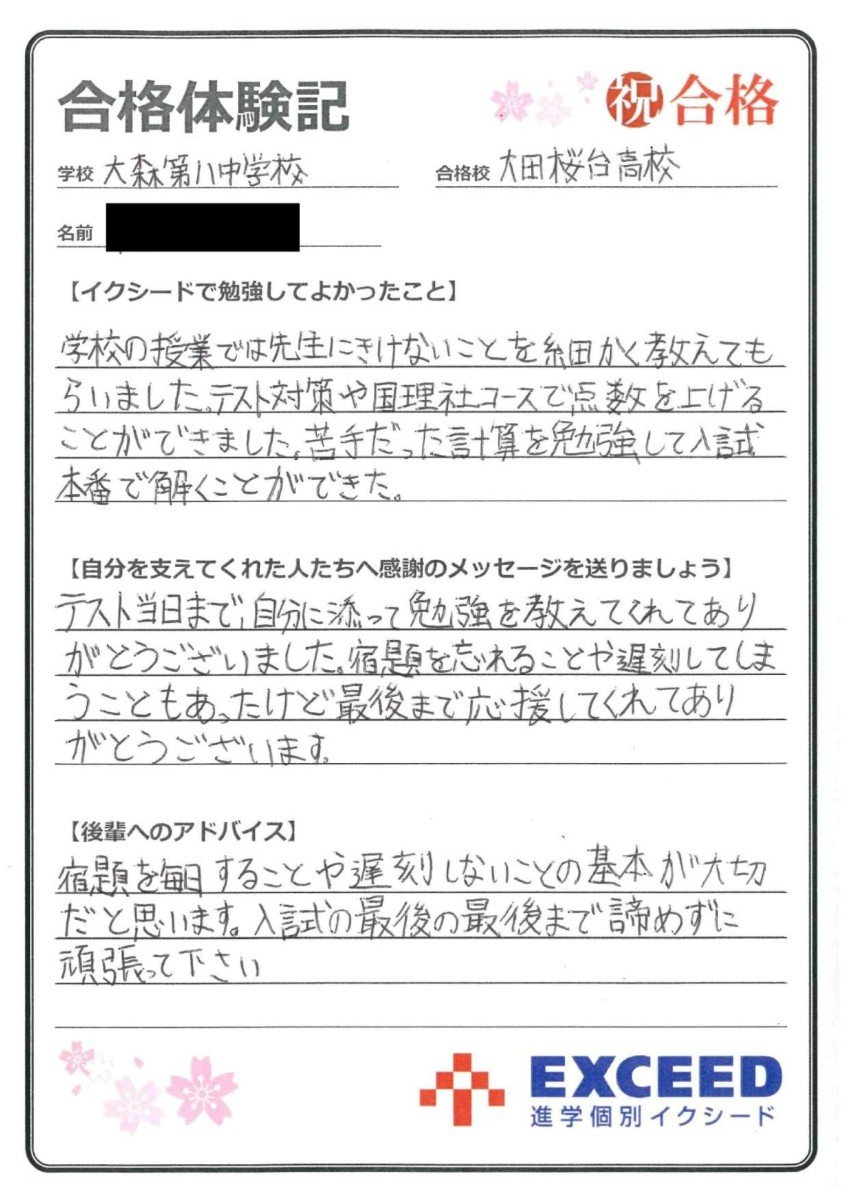 合格体験記
祝 合格
学校 大森第八中学校
合格校 大田桜台高校
名前
【イクシードで勉強してよかったこと】
学校の授業では先生にきけないことを細かく教えても
らいました。テスト対策や国理社コースで点数を上げる
ことができました。苦手だった計算を勉強して入試
本番で解くことができた。
【自分を支えてくれた人たちへ感謝のメッセージを送りましょう】
テスト当日まで、自分に添って勉強を教えてくれてあり
がとうございました。宿題を忘れることや遅刻してしま
うこともあったけど最後まで応援してくれてあり
がとうございます。
【後輩へのアドバイス】
宿題を毎日することや遅刻しないことの基本が大切
だと思います。入試の最後の最後まで諦めずに
頑張って下さい
EXCEED
進学個別イクシード